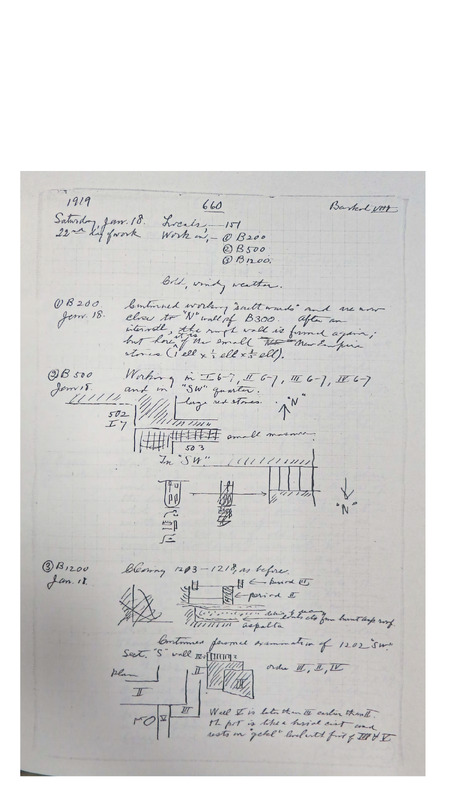 1919 660 Barkal VIII
Saturday, Jan. 18. Locals,— 151
22nd day of work Work in,— ① B200
② B500
③ B1200.
Cold, windy weather.
① B200 Continued working "southwards" and are now
Jan. 18. close to "N" wall of B300. After an
interval, the rough wall is found again;
but here it is of the small New Empire
stones (1 ell x ½ ell x ½ ell).
② B500 Working in I 6-7, II 6-7, III 6-7, IV 6-7
Jan 18. and in "SW" quarter.
large red stones. "N"
502
I-7
small masonry
503
In "SW"
"N"
③ B1200 Clearing 1203—1218, as before.
Jan. 18. period III
period II
from burnt roof
asphalte
Continued formal examination of 1202 "SW"
Sect. "S" wall IV
II order II, III, IV
III
Plan
II
II
III
V
Wall V is later than III earlier than II.
The pot is like a burial and
rests on "gebel" level with foot of III & V